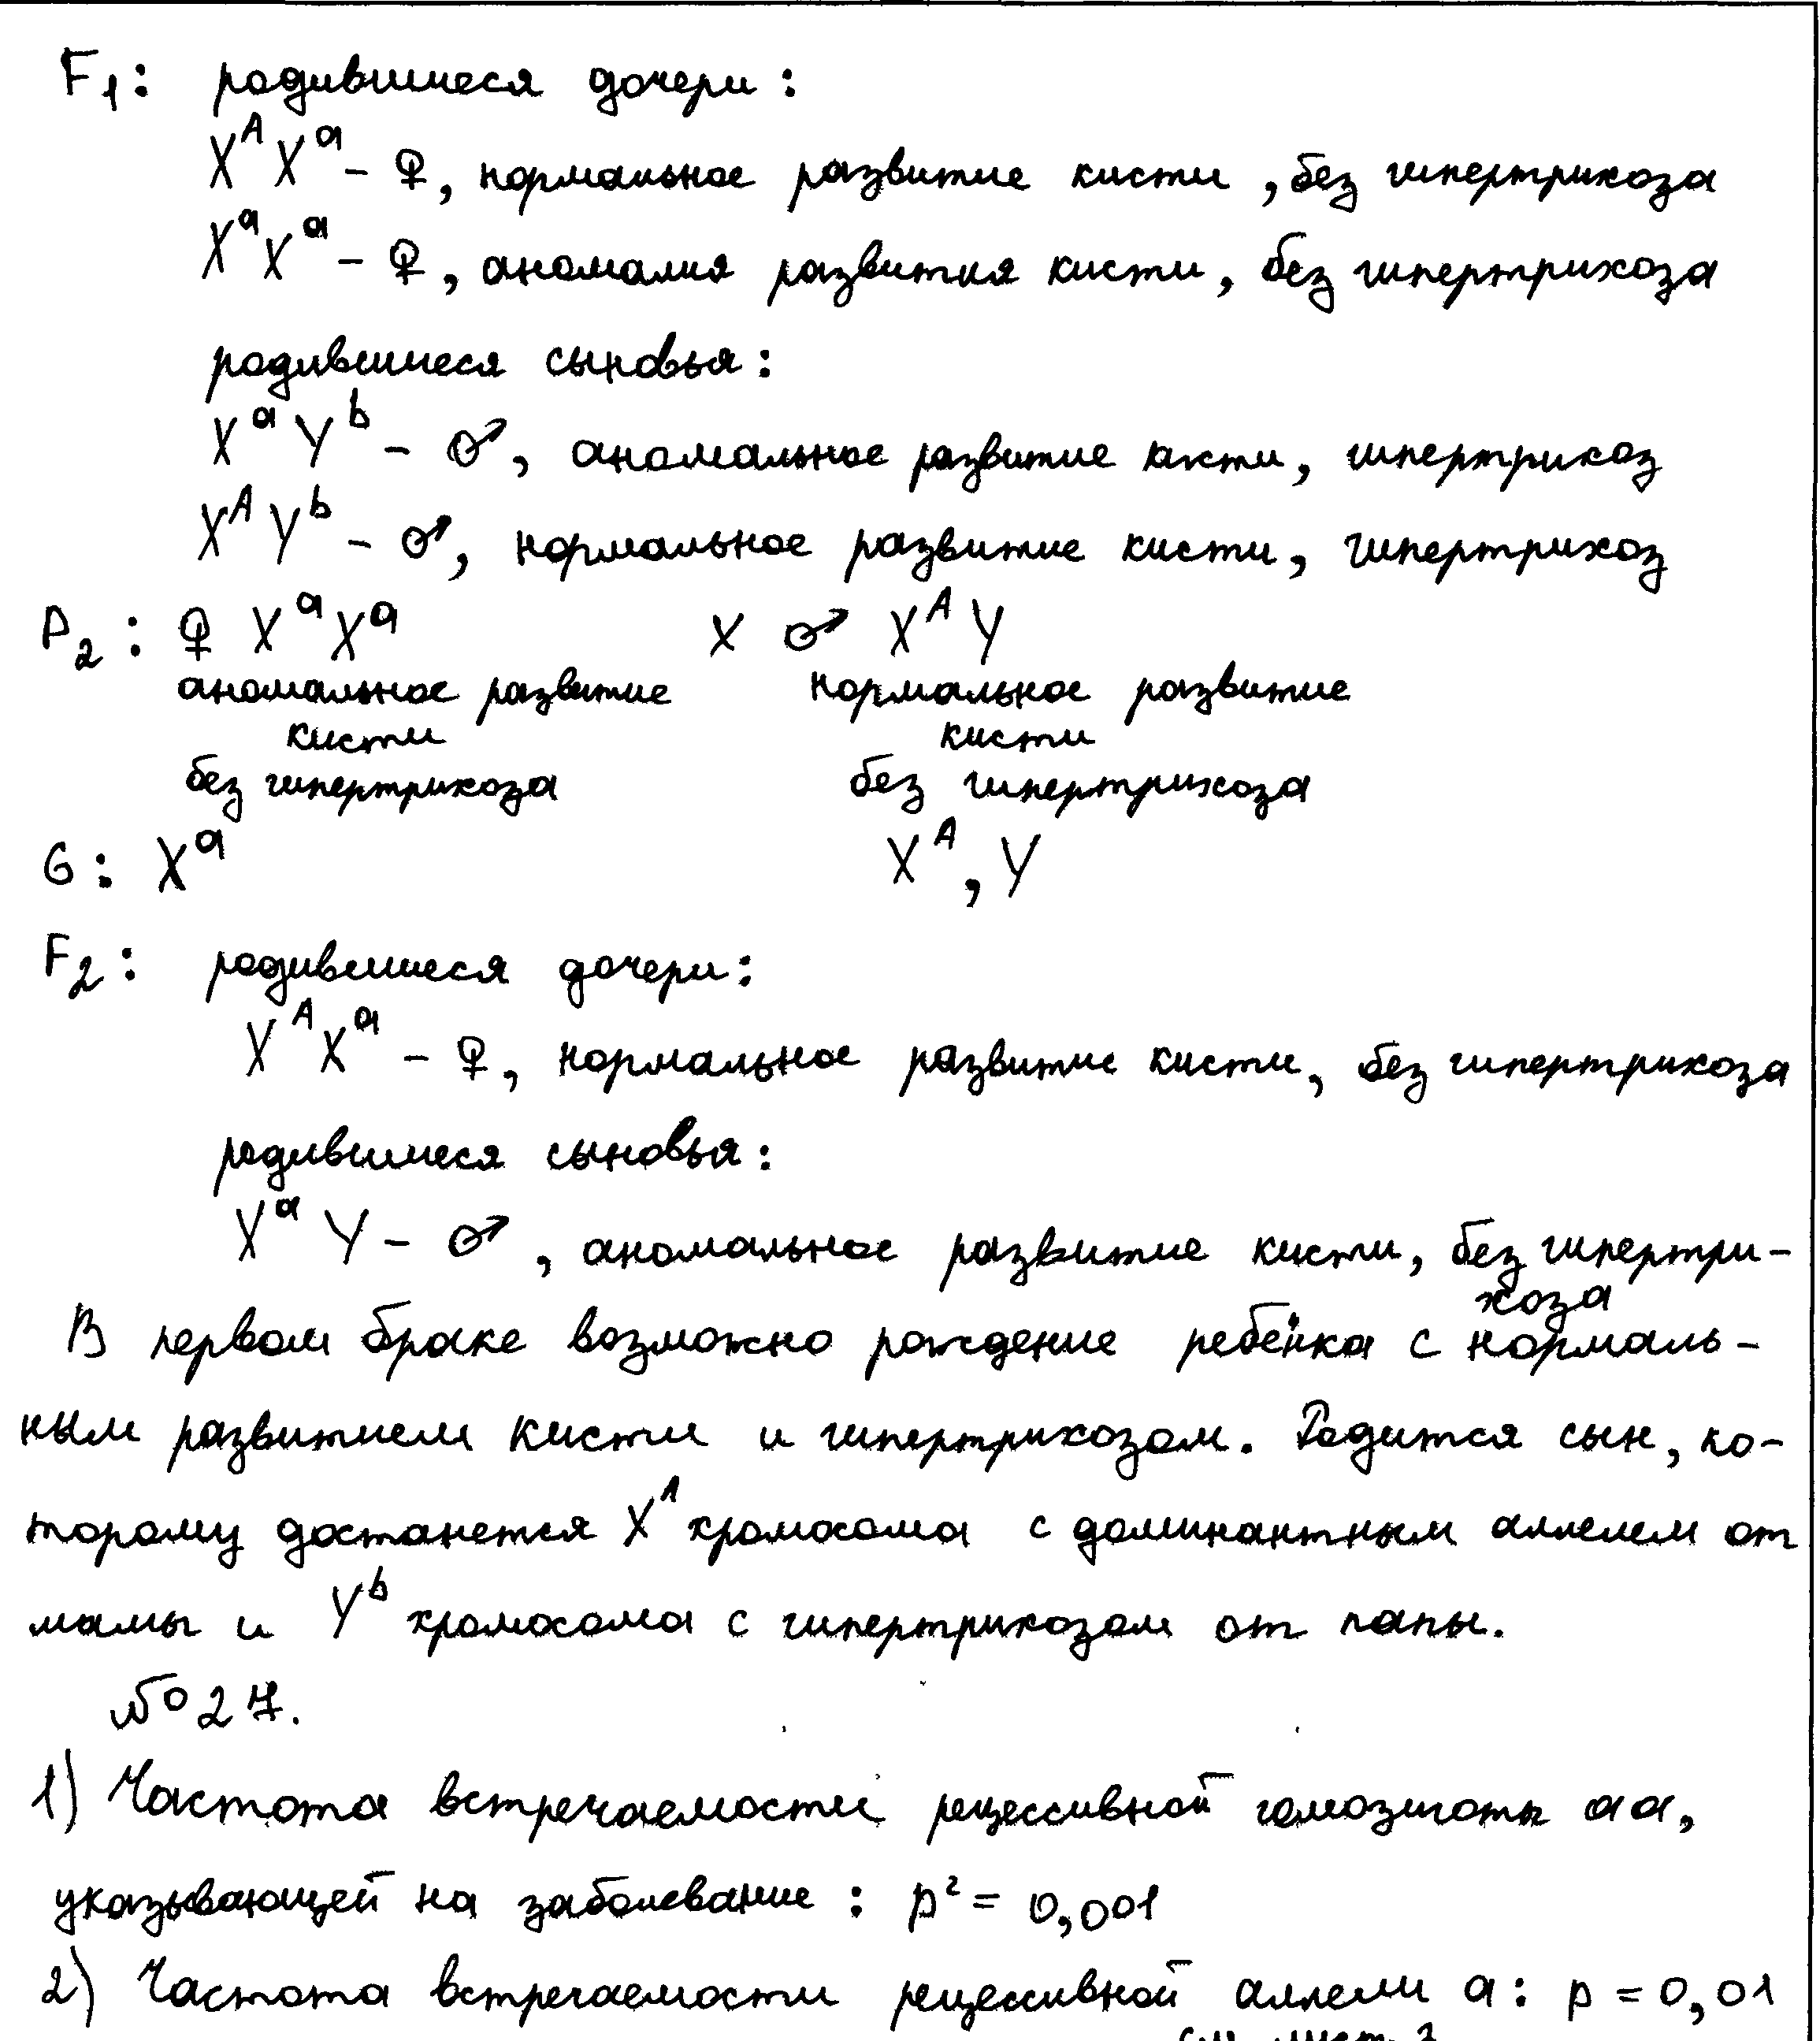 F₁: родившиеся дочери:
XᴬXᵃ – ♀, нормальное развитие кисти, без гипертрихоза
XᵃXᵃ – ♀, аномалия развития кисти, без гипертрихоза
родившиеся сыновья:
XᵃYᵇ – ♂, аномальное развитие кисти, гипертрихоз
XᴬYᵇ – ♂, нормальное развитие кисти, гипертрихоз
P₂: ♀ XᵃXᵃ x ♂ XᴬY
аномальное развитие нормальное развитие
кисти кисти
без гипертрихоза без гипертрихоза
G: Xᵃ Xᴬ, Y
F₂: родившиеся дочери:
XᴬXᵃ – ♀, нормальное развитие кисти, без гипертрихоза
родившиеся сыновья:
XᵃY – ♂, аномальное развитие кисти, без гипертри-
хоза
В первом браке возможно рождение ребёнка с нормаль-
ным развитием кисти и гипертрихозом. Родится сын, ко-
торому достанется Xᴬ хромосома с доминантным аллелем от
мамы и Yᵇ хромосома с гипертрихозом от папы.
№ 27.
1) Частота встречаемости рецессивной гомозиготы aa,
указывающей на заболевание: p² = 0,001
2) Частота встречаемости рецессивной аллели a: p = 0,01